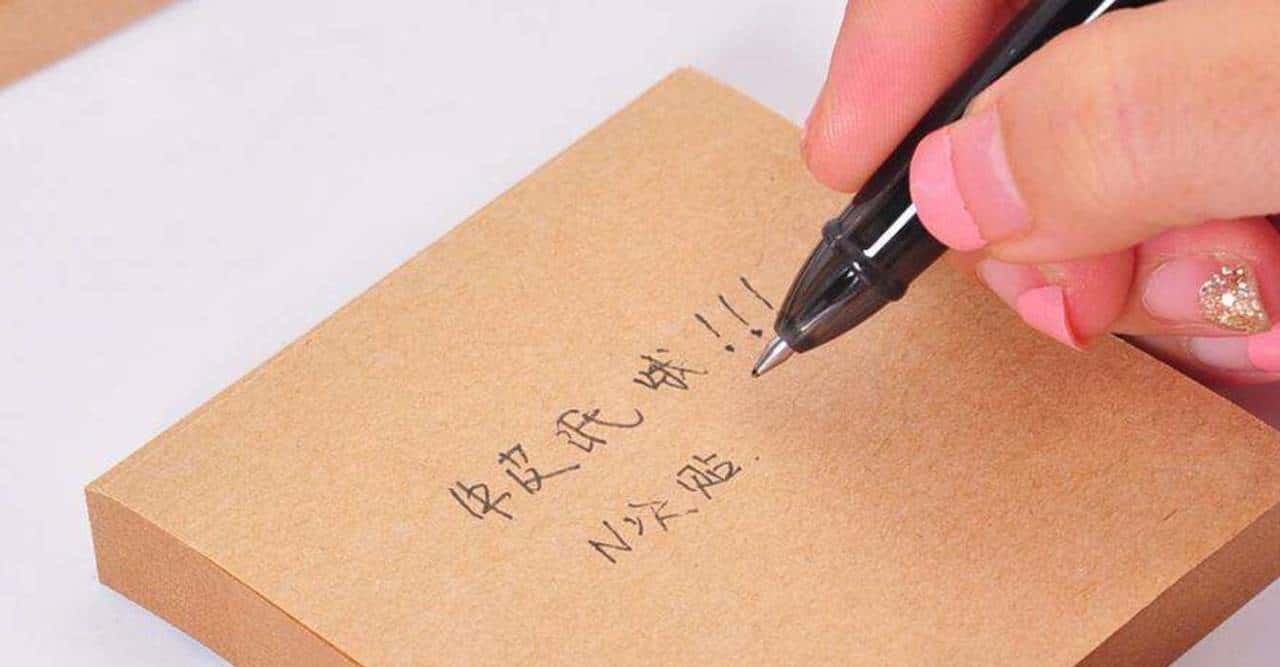 牛皮纸哦!!!
N次贴.